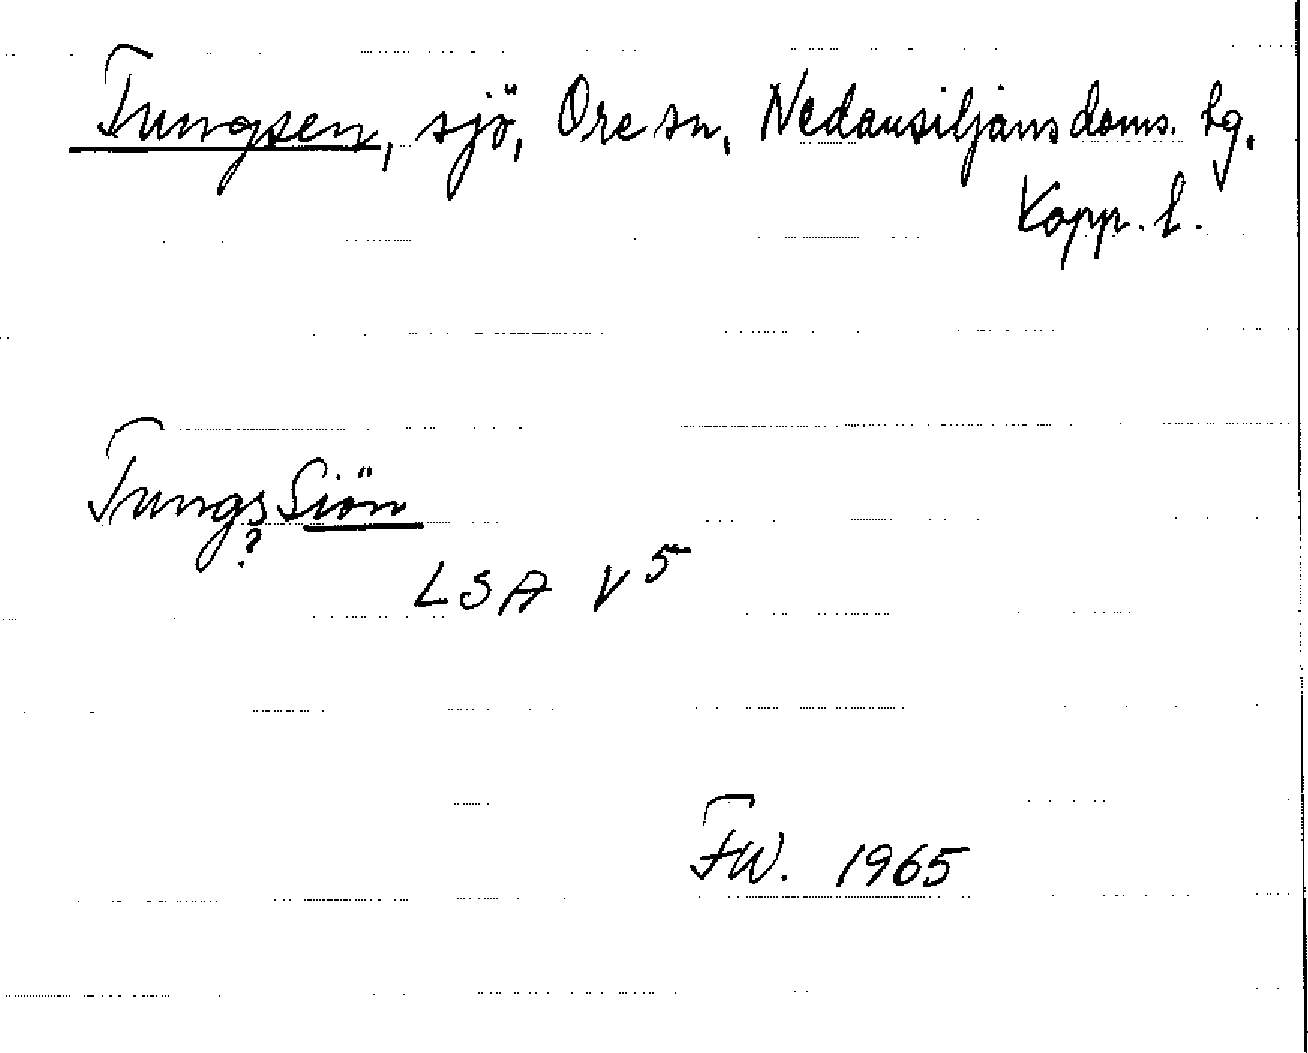 Tungsen, sjö, Ore sn, Nedansiljans doms. hg.
Kopp. l.
TungsSiön
?
LSA V5
FW. 1965